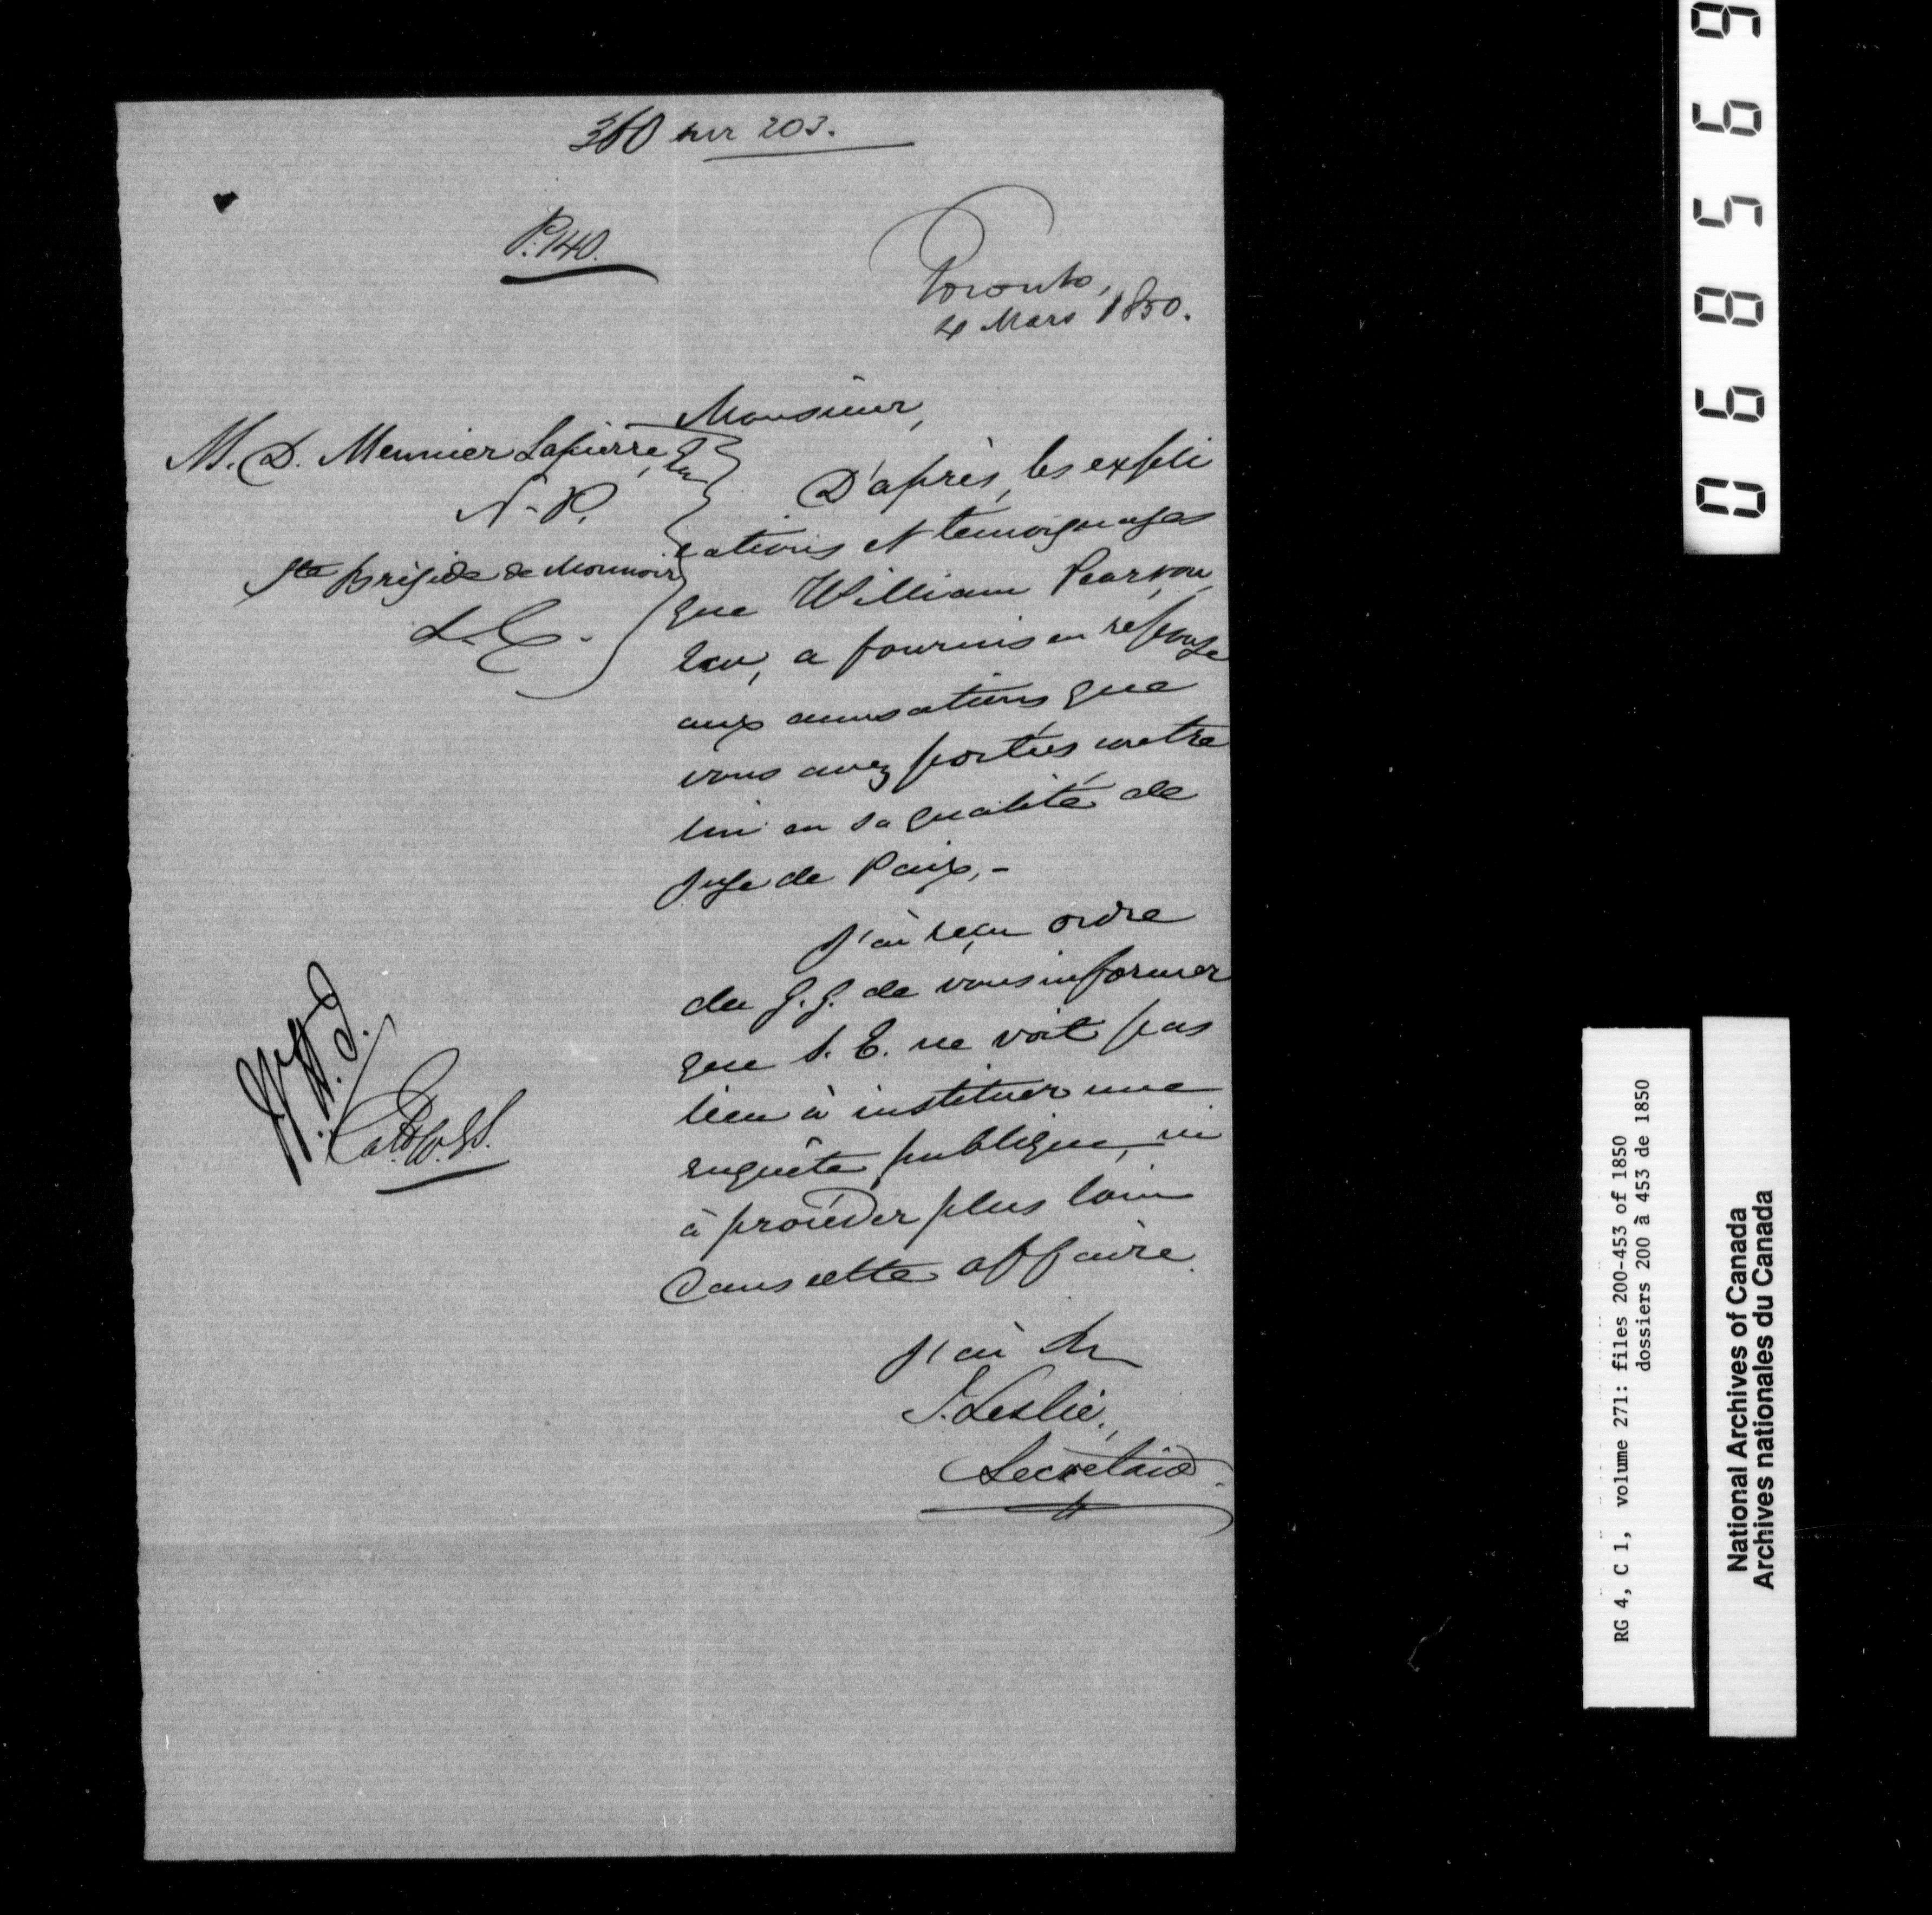 360 sur 203.
P. 140.
Toronto,
4 Mars 1850.
Monsieur,
M. D. Meunier Lapierre, Ecr
N. P.
Ste Brigide de Monnoir
L. C.
D'après les expli
cations et témoignages
que William Pearson,
Ecr, a fournis en réponse
aux accusations que
vous avez portées contre
lui en sa qualité de
Juge de Paix, -
J'ai reçu ordre
du G. G. de vous informer
que S. E. ne voit pas
lieu à instituer une
enquête publique, ni
à procéder plus loin
dans cette affaire.
J'ai &c
J. Leslie,
Secrétaire.
069569
RG 4, C 1, volume 271: files 200-453 of 1850
dossiers 200 à 453 de 1850
National Archives of Canada
Archives nationales du Canada